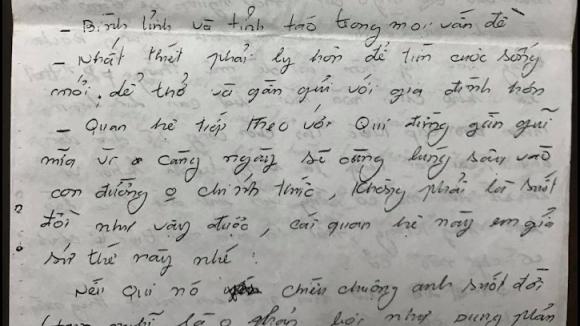 - Bình tĩnh và tỉnh táo trong mọi vấn đề
- Nhất thiết phải ly hôn để tìm cuộc sống
mới, dễ thở và gần gũi với gia đình hơn
- Quan hệ tiếp theo với Quí đừng gần gũi
nữa vì càng ngày sẽ càng lún sâu vào
con đường o chính thức, không phải là suốt
đời như vậy được, cái quan hệ này em giả
sử thế này nhé:
Nếu Quí nó chiều chuộng anh suốt đời
là o phản bội như